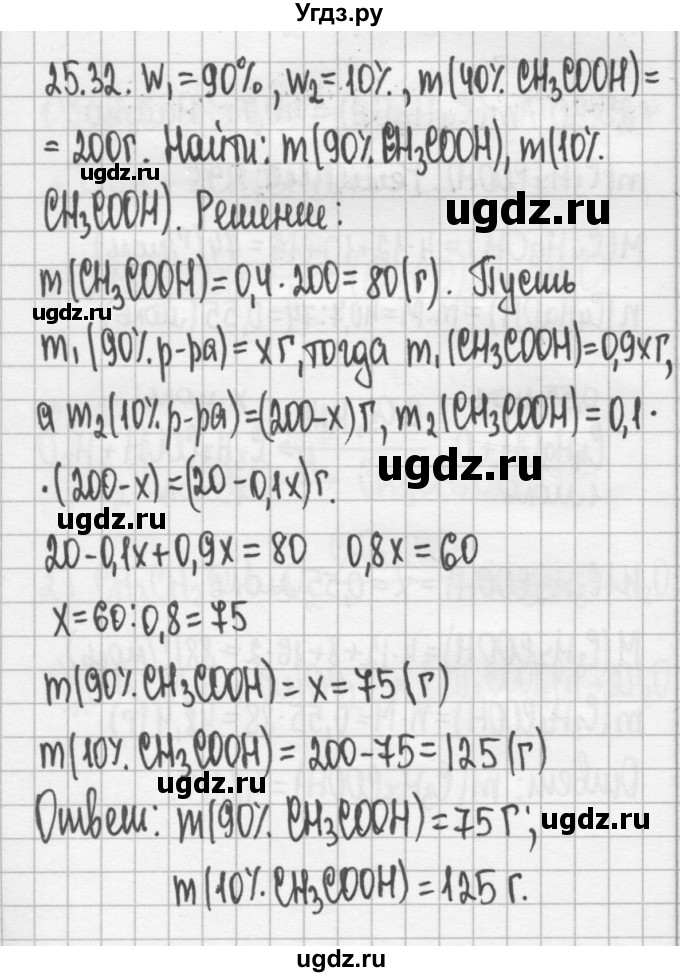 Угдз.ру
25.32. W₁=90%, W₂=10%, m(40% CH₃COOH)=
= 200г. Найти: m(90% CH₃COOH), m(10%
ugdz.ru
CH₃COOH). Решение:
ugdz.ru
m(CH₃COOH)=0,4·200=80(г). Пусть
ugdz.ru
m₁(90% р-ра)=xг, тогда m₁(CH₃COOH)=0,9xг,
а m₂(10% р-ра)=(200-x)г, m₂(CH₃COOH)=0,1·
ugdz.ru
·(200-x)=(20-0,1x)г.
ugdz.ru
20-0,1x+0,9x=80 0,8x=60
x=60:0,8=75
m(90% CH₃COOH)=x=75(г)
m(10% CH₃COOH)=200-75=125(г)
ugdz.ru
Ответ: m(90% CH₃COOH)=75г;
ugdz.ru
m(10% CH₃COOH)=125г.
ugdz.ru